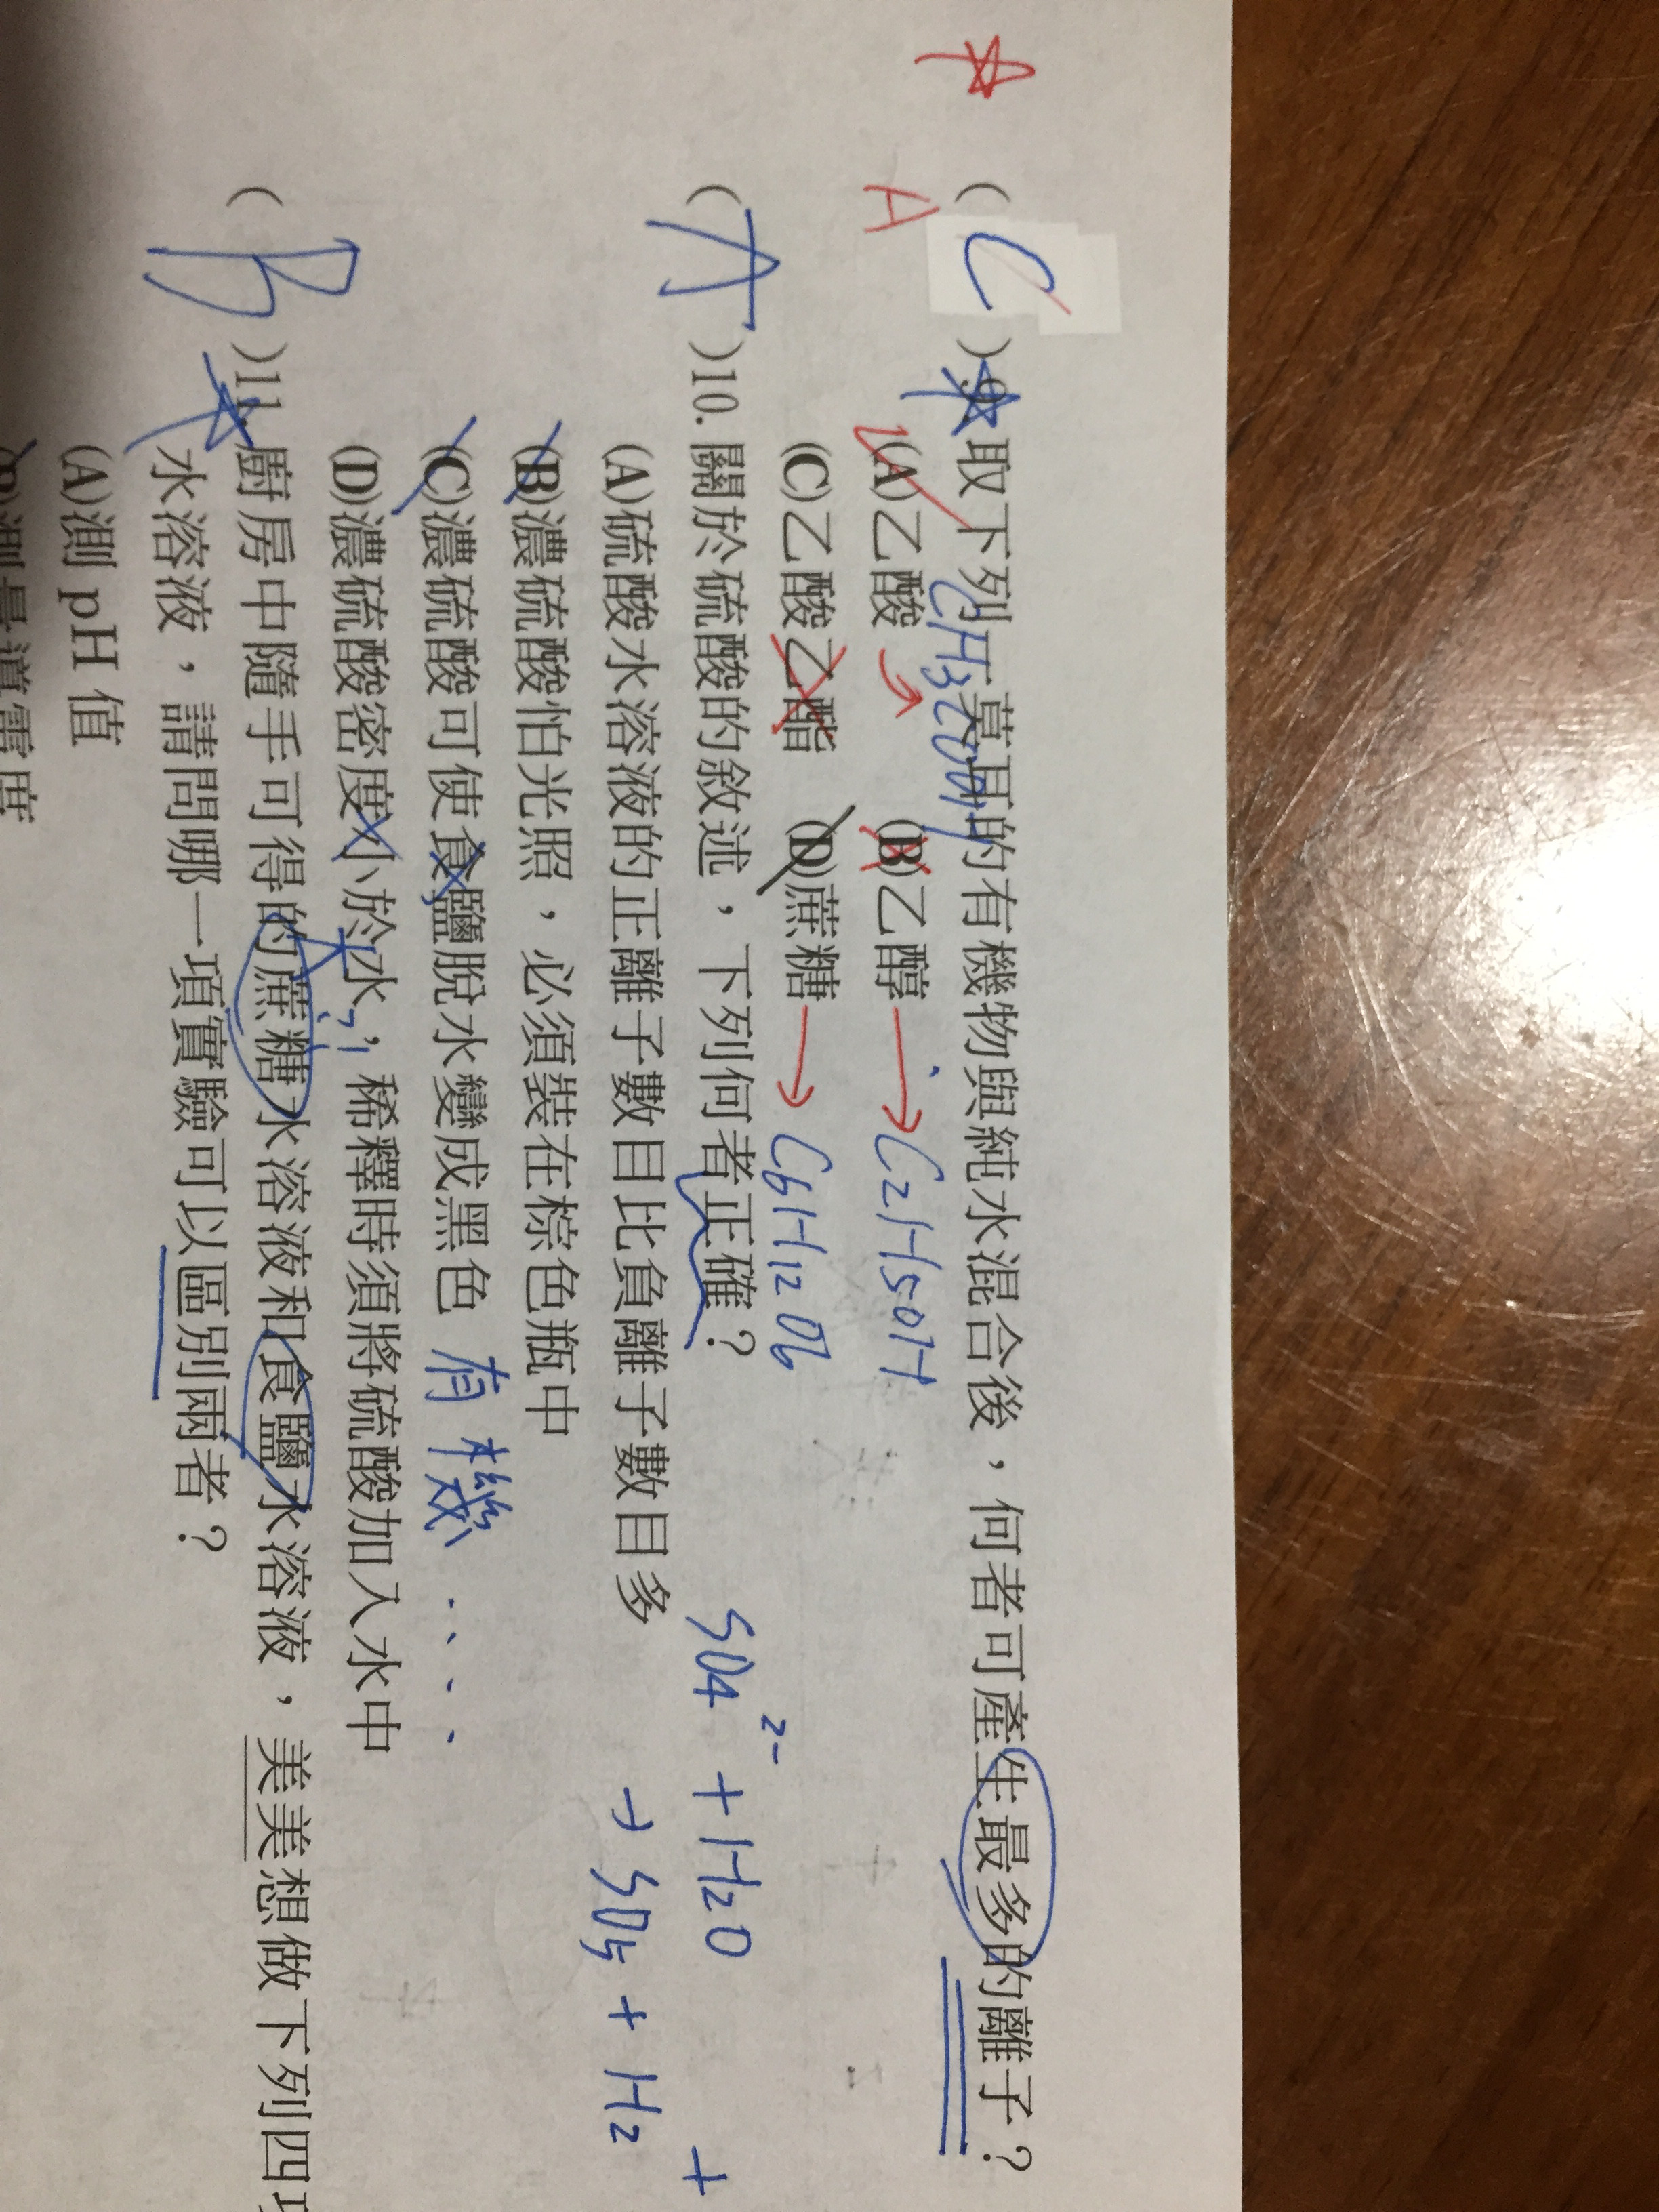 A
( C )9. 取下列一莫耳的有機物與純水混合後，何者可產生最多的離子？
CH3COOH
(A)乙酸 → (B)乙醇 → C2H5OH
(C)乙酸乙酯 (D)蔗糖 → C6H12O6
( A )10. 關於硫酸的敘述，下列何者正確？ SO4 2- + H2O +
(A)硫酸水溶液的正離子數目比負離子數目多 → SO5 + H2
(B)濃硫酸怕光照，必須裝在棕色瓶中
(C)濃硫酸可使食鹽脫水變成黑色 有機....
(D)濃硫酸密度小於水，稀釋時須將硫酸加入水中
大
( B )11. 廚房中隨手可得的蔗糖水溶液和食鹽水溶液，美美想做下列四項
水溶液，請問哪一項實驗可以區別兩者？
(A)測 pH 值
(B)測量導電度